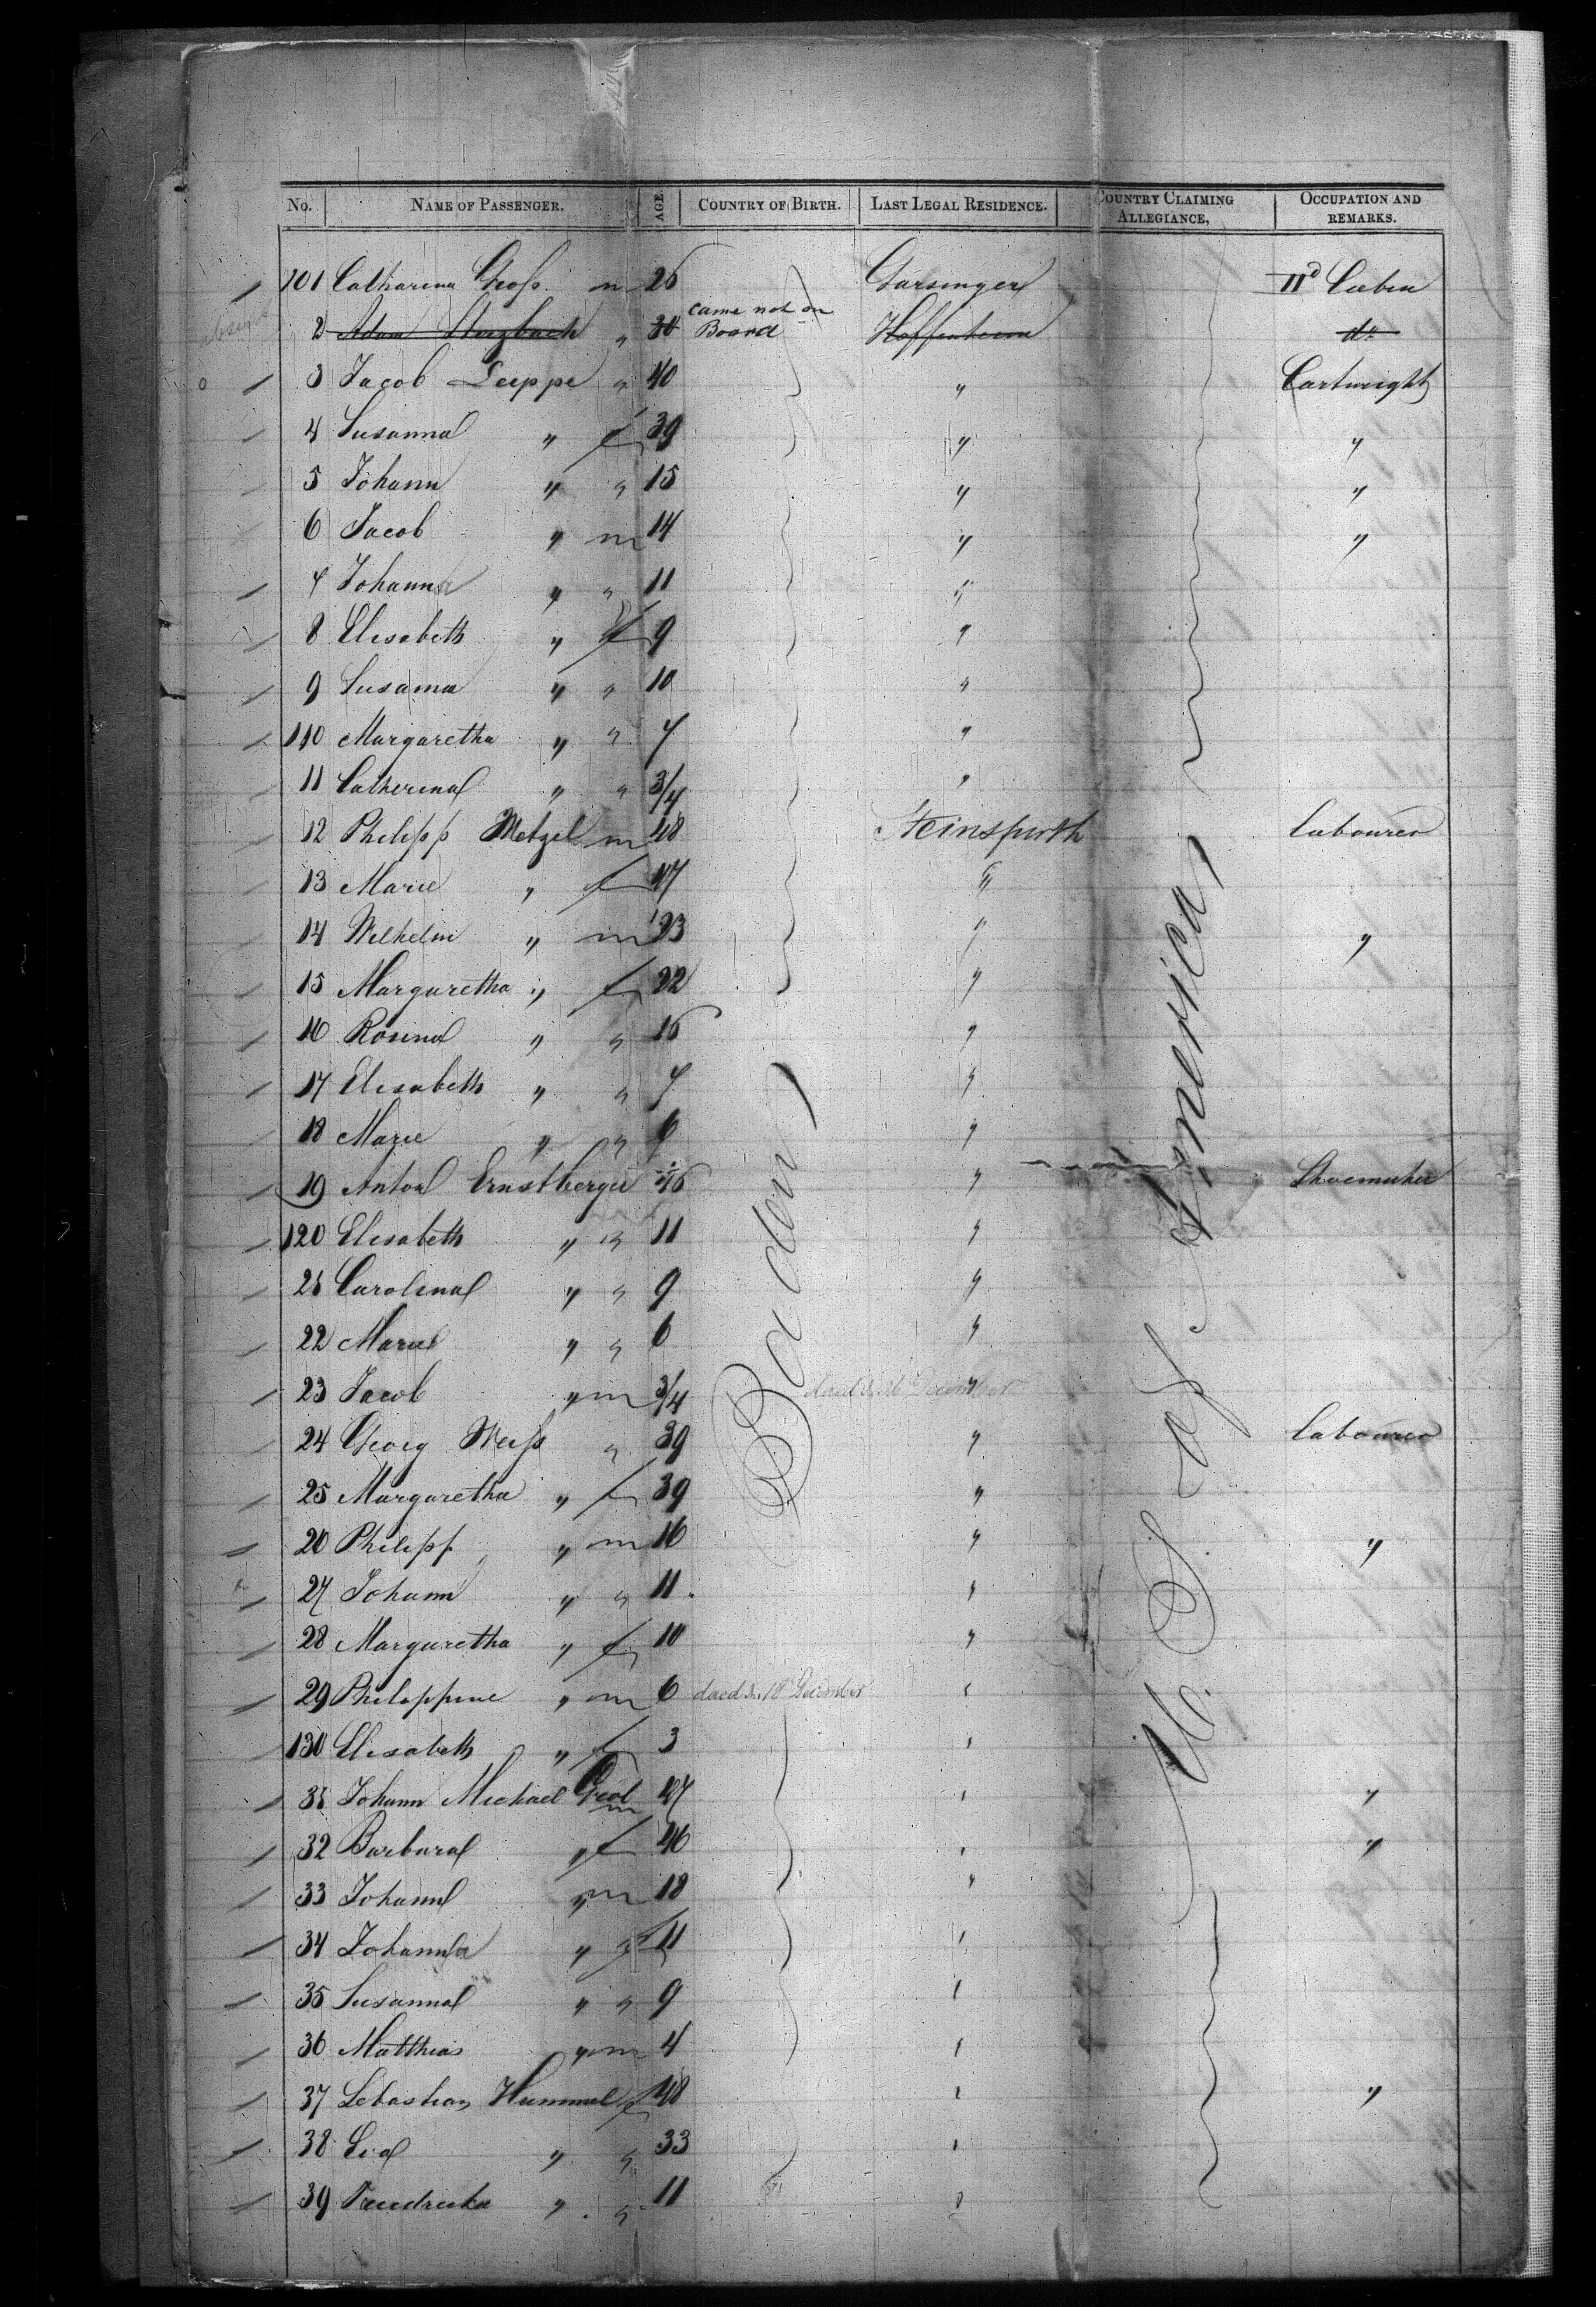 No. NAME OF PASSENGER. AGE COUNTRY OF BIRTH. LAST LEGAL RESIDENCE. COUNTRY CLAIMING ALLEGIANCE, OCCUPATION AND REMARKS.
101 Catharina m 26 IId Cabin
2 Adam " came not on Board Hoffenheim do
3 Jacob " 40 " Cartwright
4 Susanna " f 39 " "
5 Johann " " 15 " "
6 Jacob " m 14 " "
7 Johanna " " 11 "
8 Elisabeth " f 9 "
9 Susanna " " 10 "
110 Margaretha " " 7 "
11 Catherina " " 3/4 "
12 Philipp Metzel m 48 Steinsfurth labourer
13 Marie " f 47 "
14 Wilhelm " m 23 " "
15 Margaretha " f 22 "
16 Rosina " " 16 "
17 Elisabeth " " 7 "
18 Marie " " 6 "
19 Anton Ernstberger 46 " Shoemaker
120 Elisabeth " " 11 "
21 Carolina " " 9 "
22 Marie " " 6 "
23 Jacob " m 3/4 " December
24 Georg Weiß " 39 " labourer
25 Margaretha " f 39 "
26 Philipp " m 16 " "
27 Johann " " 11 "
28 Margaretha " f 10 "
29 Philippine " m 6 daed d. 18 December "
130 Elisabeth " f 3 "
31 Johann Michael m 47 " "
32 Barbara " f 46 " "
33 Johann " m 18 "
34 Johanna " f 11 "
35 Susanna " " 9 "
36 Matthias " m 4 "
37 Sebastian Hummel f 48 " "
38 " " 33 "
39 " " 11 "
Baden
U. S. of America